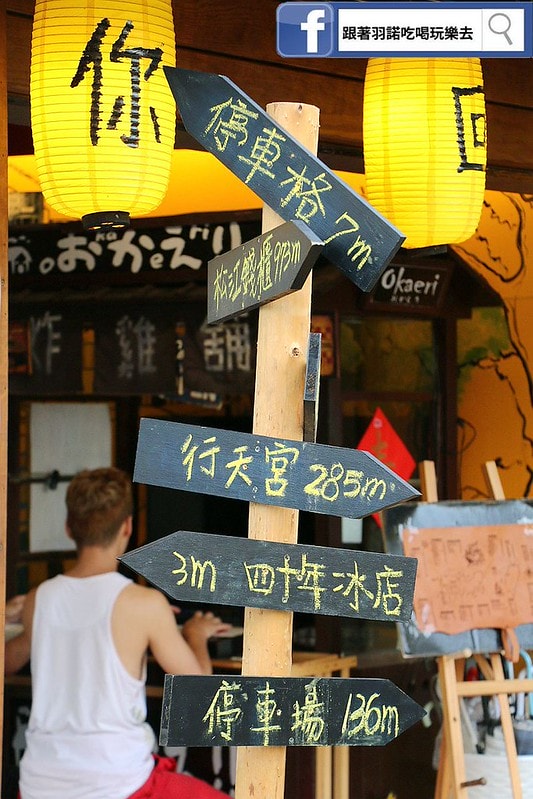 跟著羽諾吃喝玩樂去
你
回
停車格 7m
松江錢櫃 973m
おかえり
Okaeri
おかえり
炸雞舖
行天宮 285m
3m 四十年冰店
停車場 136m